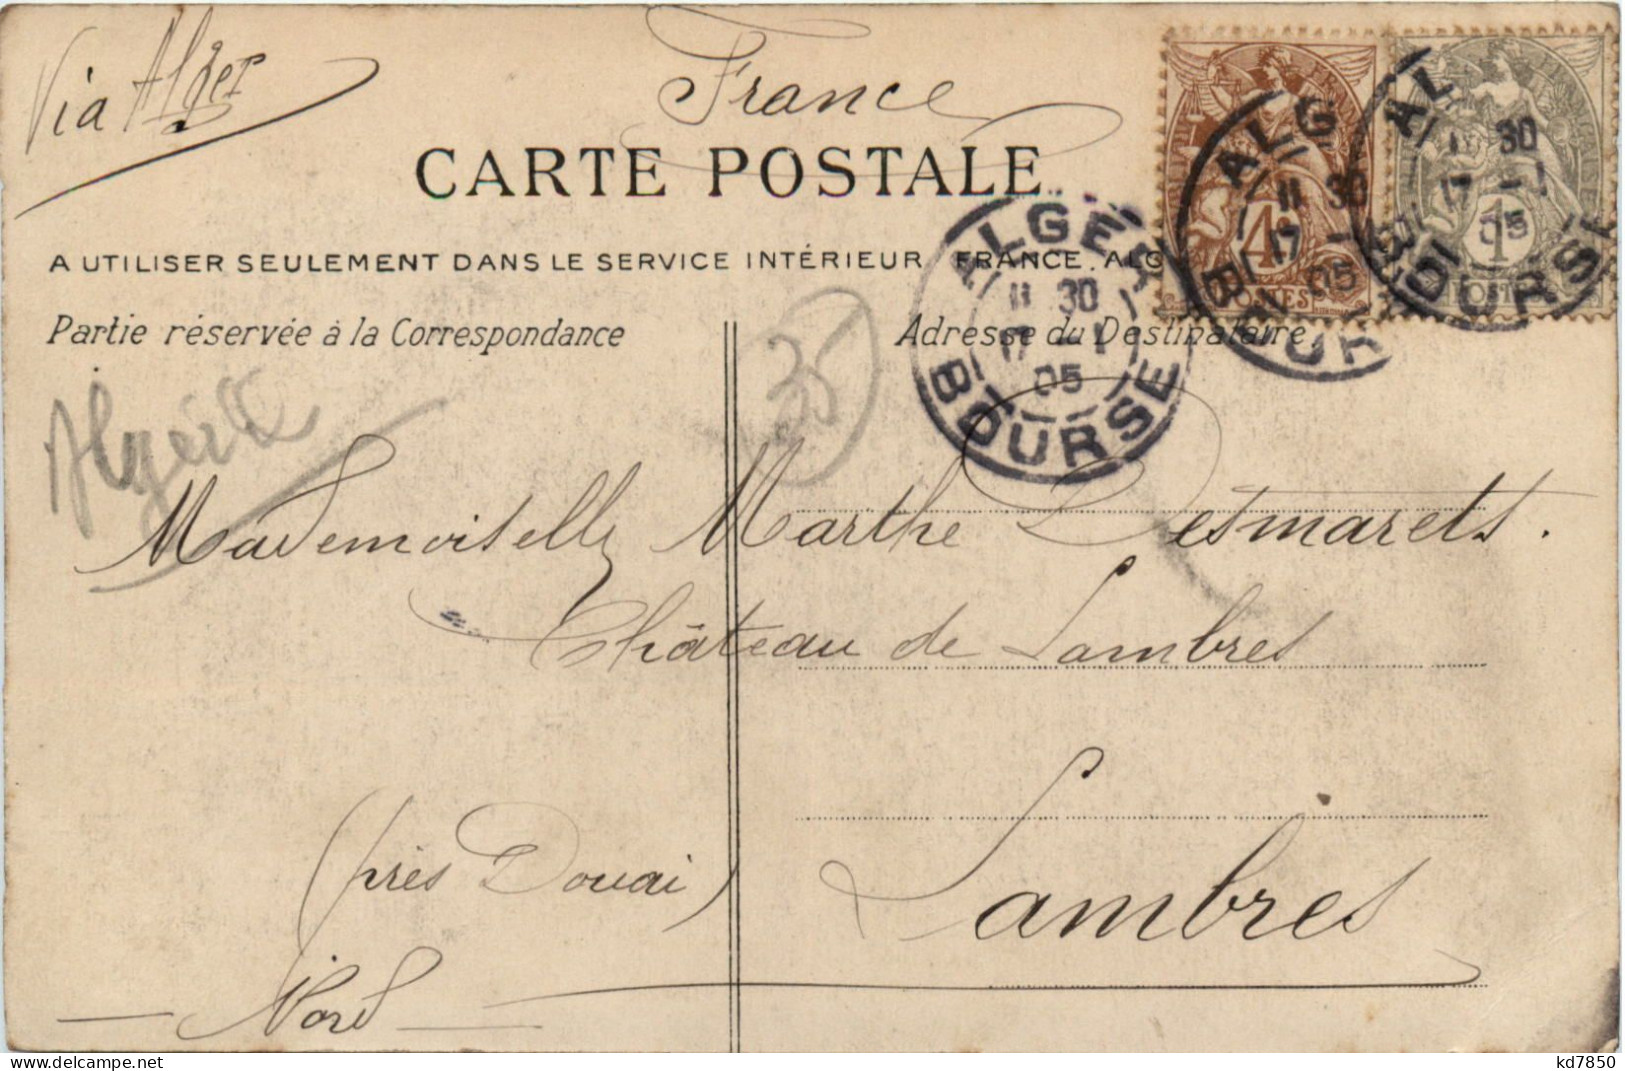 Via Alger
France
CARTE POSTALE
A UTILISER SEULEMENT DANS LE SERVICE INTÉRIEUR FRANCE. ALG
Partie réservée à la Correspondance
Adresse du Destinataire.
ALGER
11 30
17 -1
05
BOURSE
ALG
11 30
17
05
BOUR
4
POSTES
AL
11 30
17 -1
05
BOURSE
1
POST
35
Algérie
Mademoiselle Marthe Desmarets.
Château de Lambres
Lambres
(près Douai)
Nord
kd7850